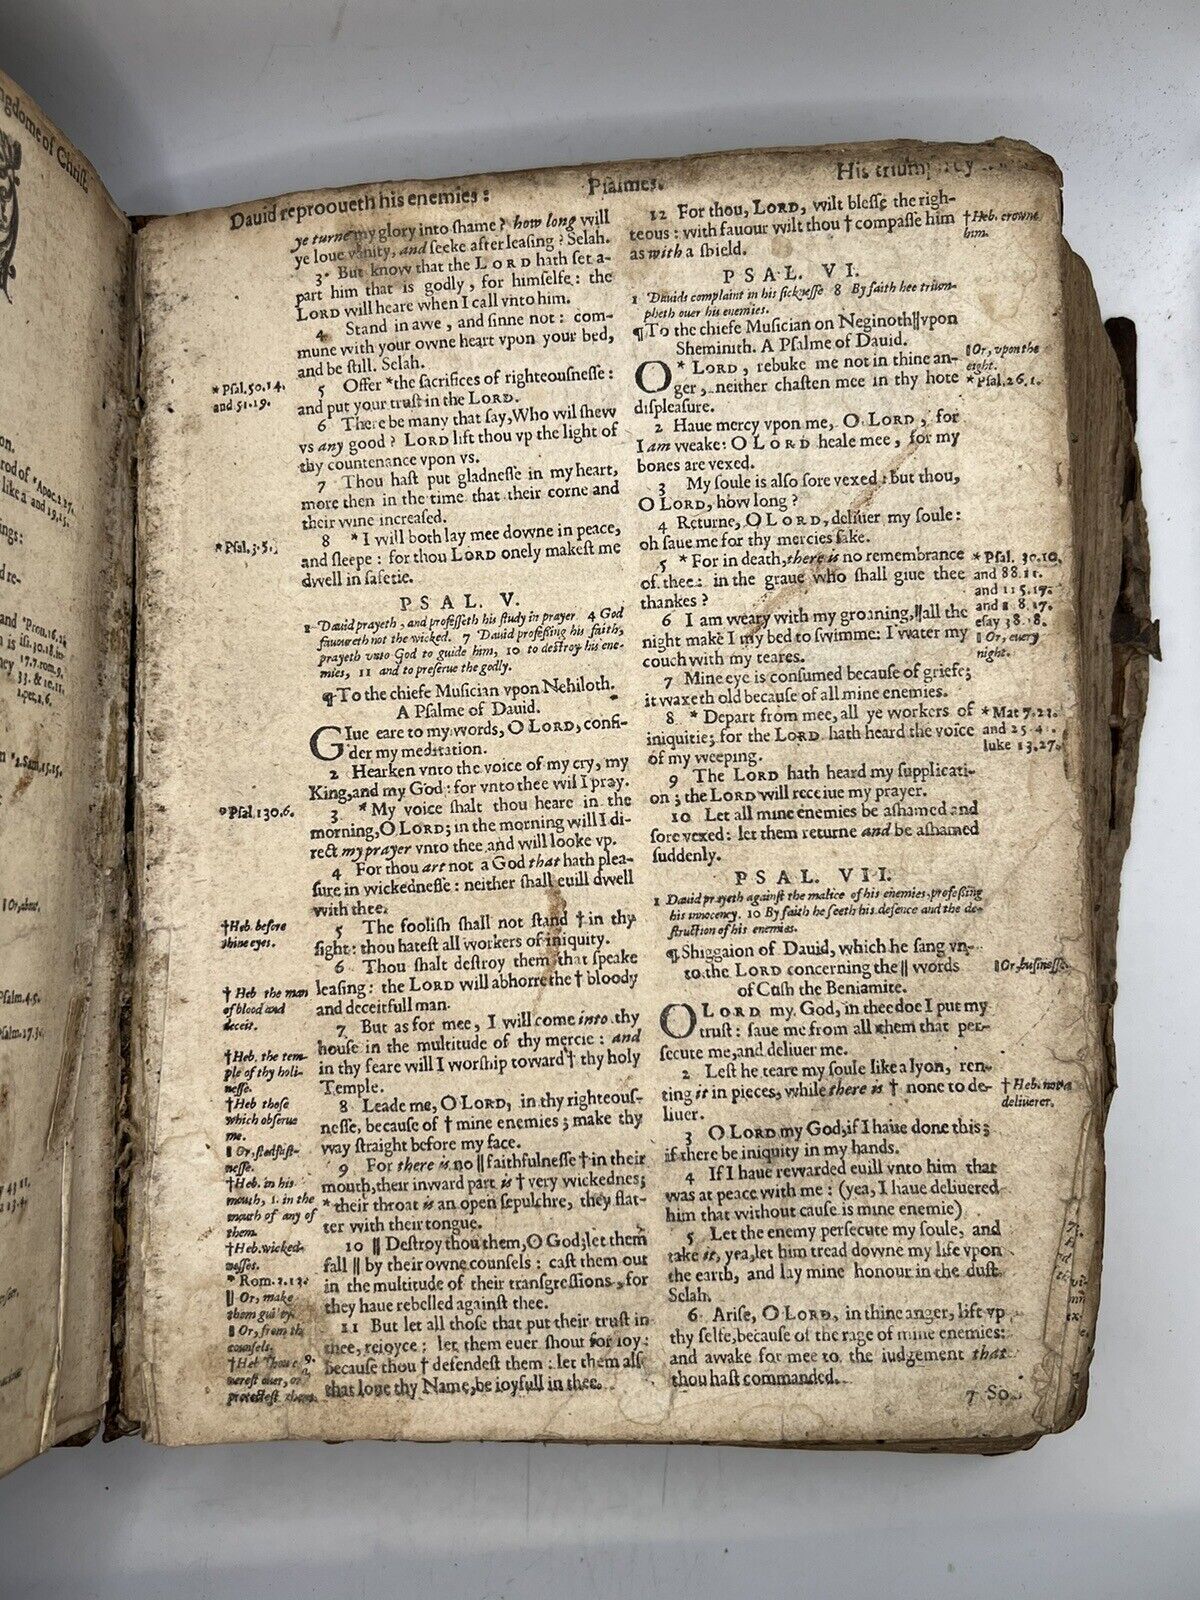 Dauid reprooueth his enemies:
Psalmes.
ye turne my glory into shame? how long will
ye loue vanity, and seeke after leasing? Selah.
3 But know that the LORD hath set a-
part him that is godly, for himselfe: the
LORD will heare when I call vnto him.
4 Stand in awe, and sinne not: com-
mune with your owne heart vpon your bed,
and be still. Selah.
5 Offer *the sacrifices of righteousnesse:
and put your trust in the LORD.
6 There be many that say,Who wil shew
vs any good? LORD lift thou vp the light of
thy countenance vpon vs.
7 Thou hast put gladnesse in my heart,
more then in the time that their corne and
their wine increased.
8 *I will both lay mee downe in peace,
and sleepe: for thou LORD onely makest me
dwell in safetie.
PSAL. V.
1 Dauid prayeth, and professeth his study in prayer 4 God
fauoureth not the wicked. 7 Dauid professing his faith,
prayeth vnto God to guide him, 10 to destroy his ene-
mies, 11 and to preserue the godly.
¶To the chiefe Musician vpon Nehiloth.
A Psalme of Dauid.
GIue eare to my words, O LORD, consi-
der my meditation.
2 Hearken vnto the voice of my cry, my
King,and my God: for vnto thee wil I pray.
3 *My voice shalt thou heare in the
morning,O LORD; in the morning will I di-
rect my prayer vnto thee and will looke vp.
4 For thou art not a God that hath plea-
sure in wickednesse: neither shall euill dwell
with thee.
5 The foolish shall not stand † in thy
sight: thou hatest all workers of iniquity.
6 Thou shalt destroy them that speake
leasing: the LORD will abhorre the † bloody
and deceitfull man.
7 But as for mee, I will come into thy
house in the multitude of thy mercie: and
in thy feare will I worship toward † thy holy
Temple.
8 Leade me, O LORD, in thy righteous-
nesse, because of † mine enemies; make thy
way straight before my face.
9 For there is no || faithfulnesse † in their
mouth,their inward part is † very wickednes;
* their throat is an open sepulchre, they flat-
ter with their tongue.
10 || Destroy thou them,O God;let them
fall || by their owne counsels: cast them out
in the multitude of their transgressions, for
they haue rebelled against thee.
11 But let all those that put their trust in
thee, reioyce: let them euer shout for ioy:
because thou † defendest them: let them also
that loue thy Name,be ioyfull in thee.
*Psal.50.14.
and 51.19.
*Psal.3.5.
*Psal.130.6.
†Heb. before
thine eyes.
† Heb the man
of blood and
deceit.
†Heb. the tem-
ple of thy holi-
nesse.
†Heb those
which obserue
me.
|| Or, stedfast-
nesse.
†Heb. in his
mouth, i. in the
mouth of any of
them.
†Heb.wicked-
nesses.
* Rom.
|| Or, make
them
|| Or, from
counsels.
†Heb
12 For thou, LORD, wilt blesse the righ-
teous: with fauour wilt thou † compasse him
as with a shield.
PSAL. VI.
1 Dauids complaint in his sicknesse 8 By faith hee trium-
pheth ouer his enemies.
¶To the chiefe Musician on Neginoth||vpon
Sheminith. A Psalme of Dauid.
O * LORD, rebuke me not in thine an-
ger, neither chasten mee in thy hote
displeasure.
2 Haue mercy vpon me, O LORD, for
I am weake: O LORD heale mee, for my
bones are vexed.
3 My soule is also sore vexed: but thou,
O LORD, how long?
4 Returne, O LORD, deliuer my soule:
oh saue me for thy mercies sake.
5 * For in death, there is no remembrance
of thee: in the graue who shall giue thee
thankes?
6 I am weary with my groaning,||all the
night make I my bed to swimme: I water my
couch with my teares.
7 Mine eye is consumed because of griefe;
it waxeth old because of all mine enemies.
8 * Depart from mee, all ye workers of
iniquitie; for the LORD hath heard the voice
of my weeping.
9 The LORD hath heard my supplicati-
on; the LORD will receiue my prayer.
10 Let all mine enemies be ashamed and
sore vexed: let them returne and be ashamed
suddenly.
PSAL. VII.
1 Dauid prayeth against the malice of his enemies,professing
his innocency. 10 By faith he seeth his defence and the de-
struction of his enemies.
¶Shiggaion of Dauid, which he sang vn-
to the LORD concerning the || words
of Cush the Beniamite.
O LORD my God, in thee doe I put my
trust: saue me from all them that per-
secute me,and deliuer me.
2 Lest he teare my soule like a lyon, ren-
ting it in pieces, while there is † none to de-
liuer.
3 O LORD my God,if I haue done this;
if there be iniquity in my hands.
4 If I haue rewarded euill vnto him that
was at peace with me: (yea, I haue deliuered
him that without cause is mine enemie)
5 Let the enemy persecute my soule, and
take it, yea,let him tread downe my life vpon
the earth, and lay mine honour in the dust.
Selah.
6 Arise, O LORD, in thine anger, lift vp
thy selfe,because of the rage of mine enemies:
and awake for mee to the iudgement that
thou hast commanded.
7 So
†Heb. crowne
him.
||Or, vpon the
eight.
*Psal.26.1.
* Psal. 30.10.
and 88.11.
and 115.17.
|| Or, euery
night.
* Mat 7.23.
and 25 4
luke 13.27.
||Or,businesse.
† Heb. not a
deliuerer.